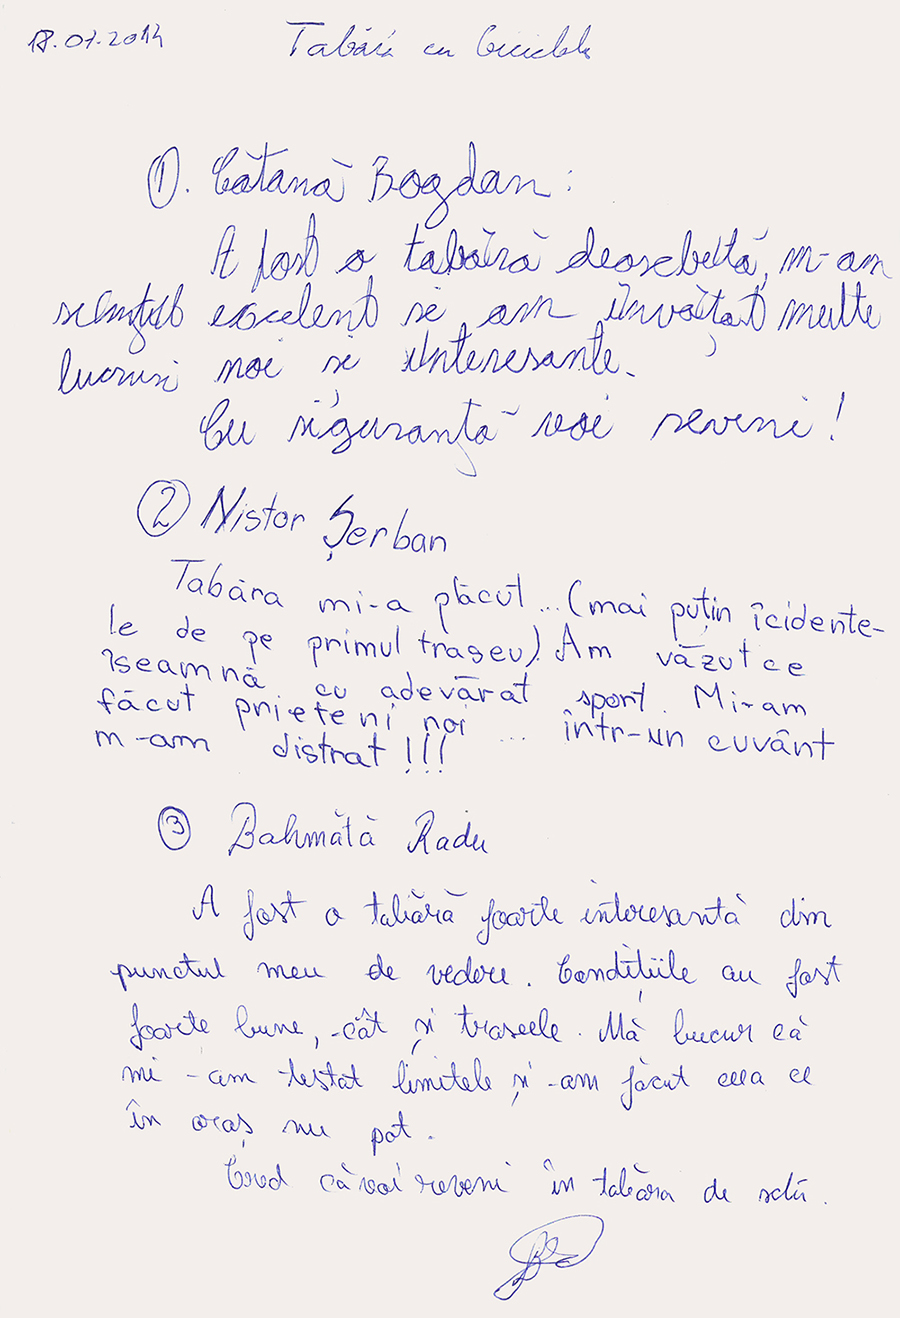 18.07.2014 Tabără cu biciclete
1. Cătană Bogdan:
A fost o tabără deosebită, m-am
simțit excelent si am învățat multe
lucruri noi si interesante.
Cu siguranță voi reveni!
2 Nistor Șerban
Tabăra mi-a plăcut... (mai puțin îcidente-
le de pe primul traseu). Am văzut ce
îseamnă cu adevărat sport. Mi-am
făcut prieteni noi ... într-un cuvânt
m-am distrat!!!
3 Bahmătă Radu
A fost o tabără foarte interesantă din
punctul meu de vedere. Condițiile au fost
foarte bune, -cât și traseele. Mă bucur că
mi-am testat limitele și -am făcut ceea ce
în oraș nu pot.
Cred că voi reveni în tabăra de schi.